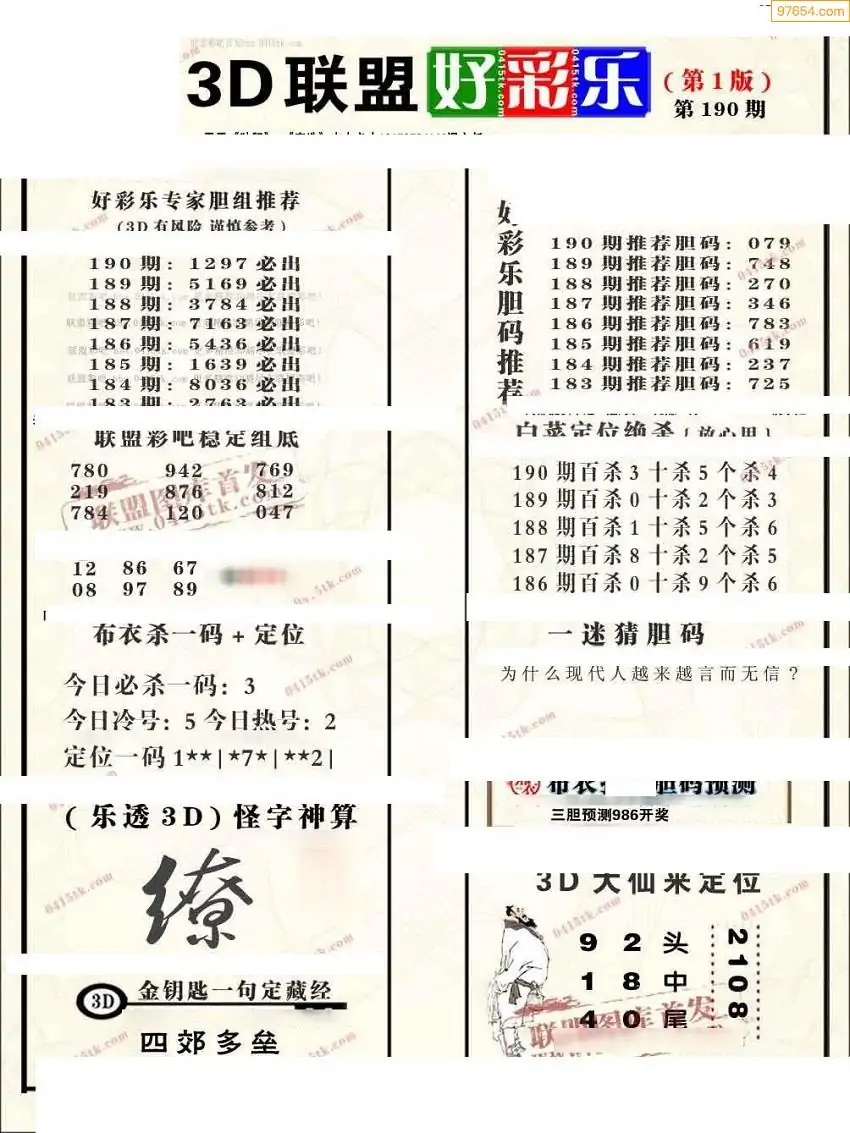 97654.com
3D联盟 好彩乐 (第1版)
第190期
好彩乐专家胆组推荐
(3D有风险 谨慎参考)
190期:1297必出
189期:5169必出
188期:3784必出
187期:7163必出
186期:5436必出
185期:1639必出
184期:8036必出
183期:2763必出
联盟彩吧稳定组底
780 942 769
219 876 812
784 120 047
12 86 67
08 97 89
布衣杀一码+定位
今日必杀一码:3
今日冷号:5 今日热号:2
定位一码1**|*7*|**2|
(乐透3D)怪字神算
缭
3D 金钥匙一句定藏经
四郊多垒
好彩乐胆码推荐
190期推荐胆码:079
189期推荐胆码:748
188期推荐胆码:270
187期推荐胆码:346
186期推荐胆码:783
185期推荐胆码:619
184期推荐胆码:237
183期推荐胆码:725
白菜定位绝杀(放心用)
190期百杀3十杀5个杀4
189期百杀0十杀2个杀3
188期百杀1十杀5个杀6
187期百杀8十杀2个杀5
186期百杀0十杀9个杀6
一迷猜胆码
为什么现代人越来越言而无信?
布衣 胆码预测
三胆预测986开奖
3D大仙来定位
9 2头
1 8中
4 0尾
2108
联盟图库首发
www.0415tk.com
0415tk.com